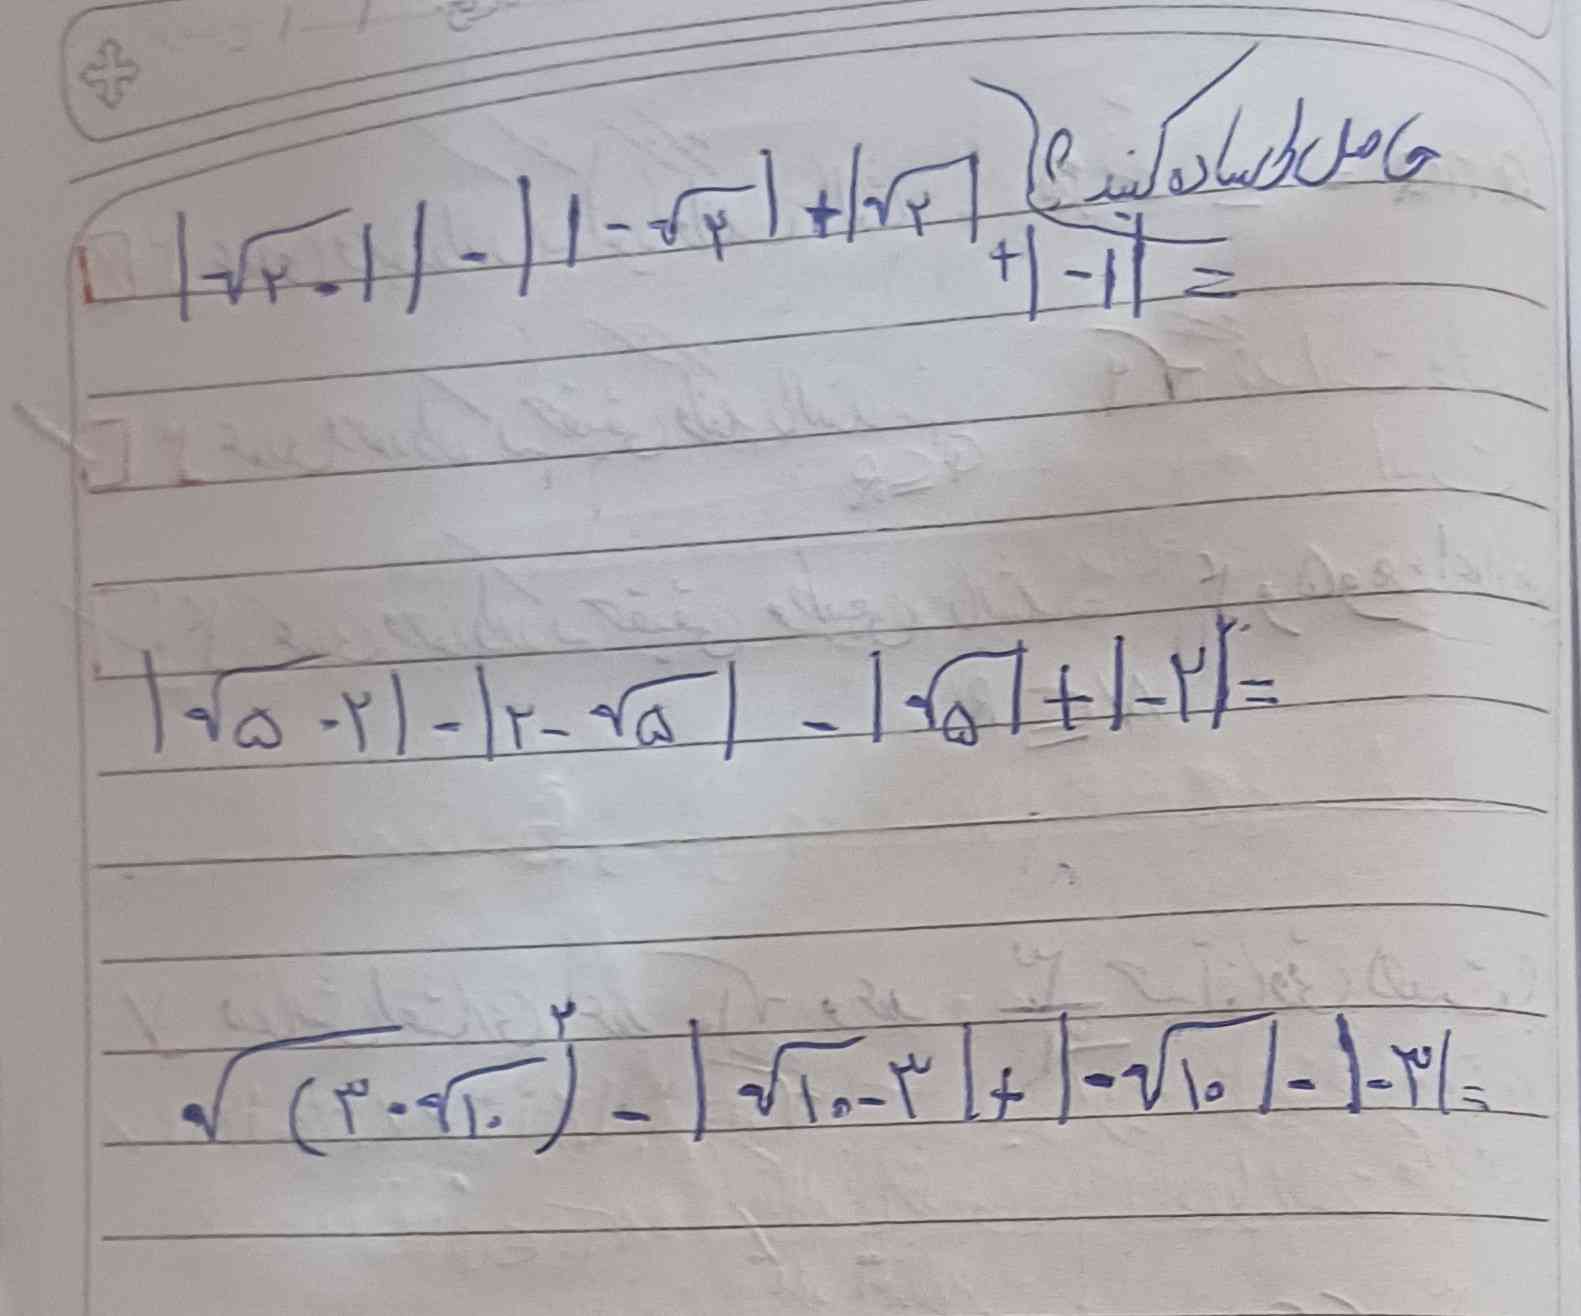 حاصل را ساده کنید؟
|√۲ - 1| - |1 - √۲| + |√۲|
+ |-1| =
|√۵ - ۲| - |۲ - √۵| - |√۵| + |-۲| =
√(۳ - √۱۰)^۲ - |√۱۰ - ۳| + |-√۱۰| - |-۳| =